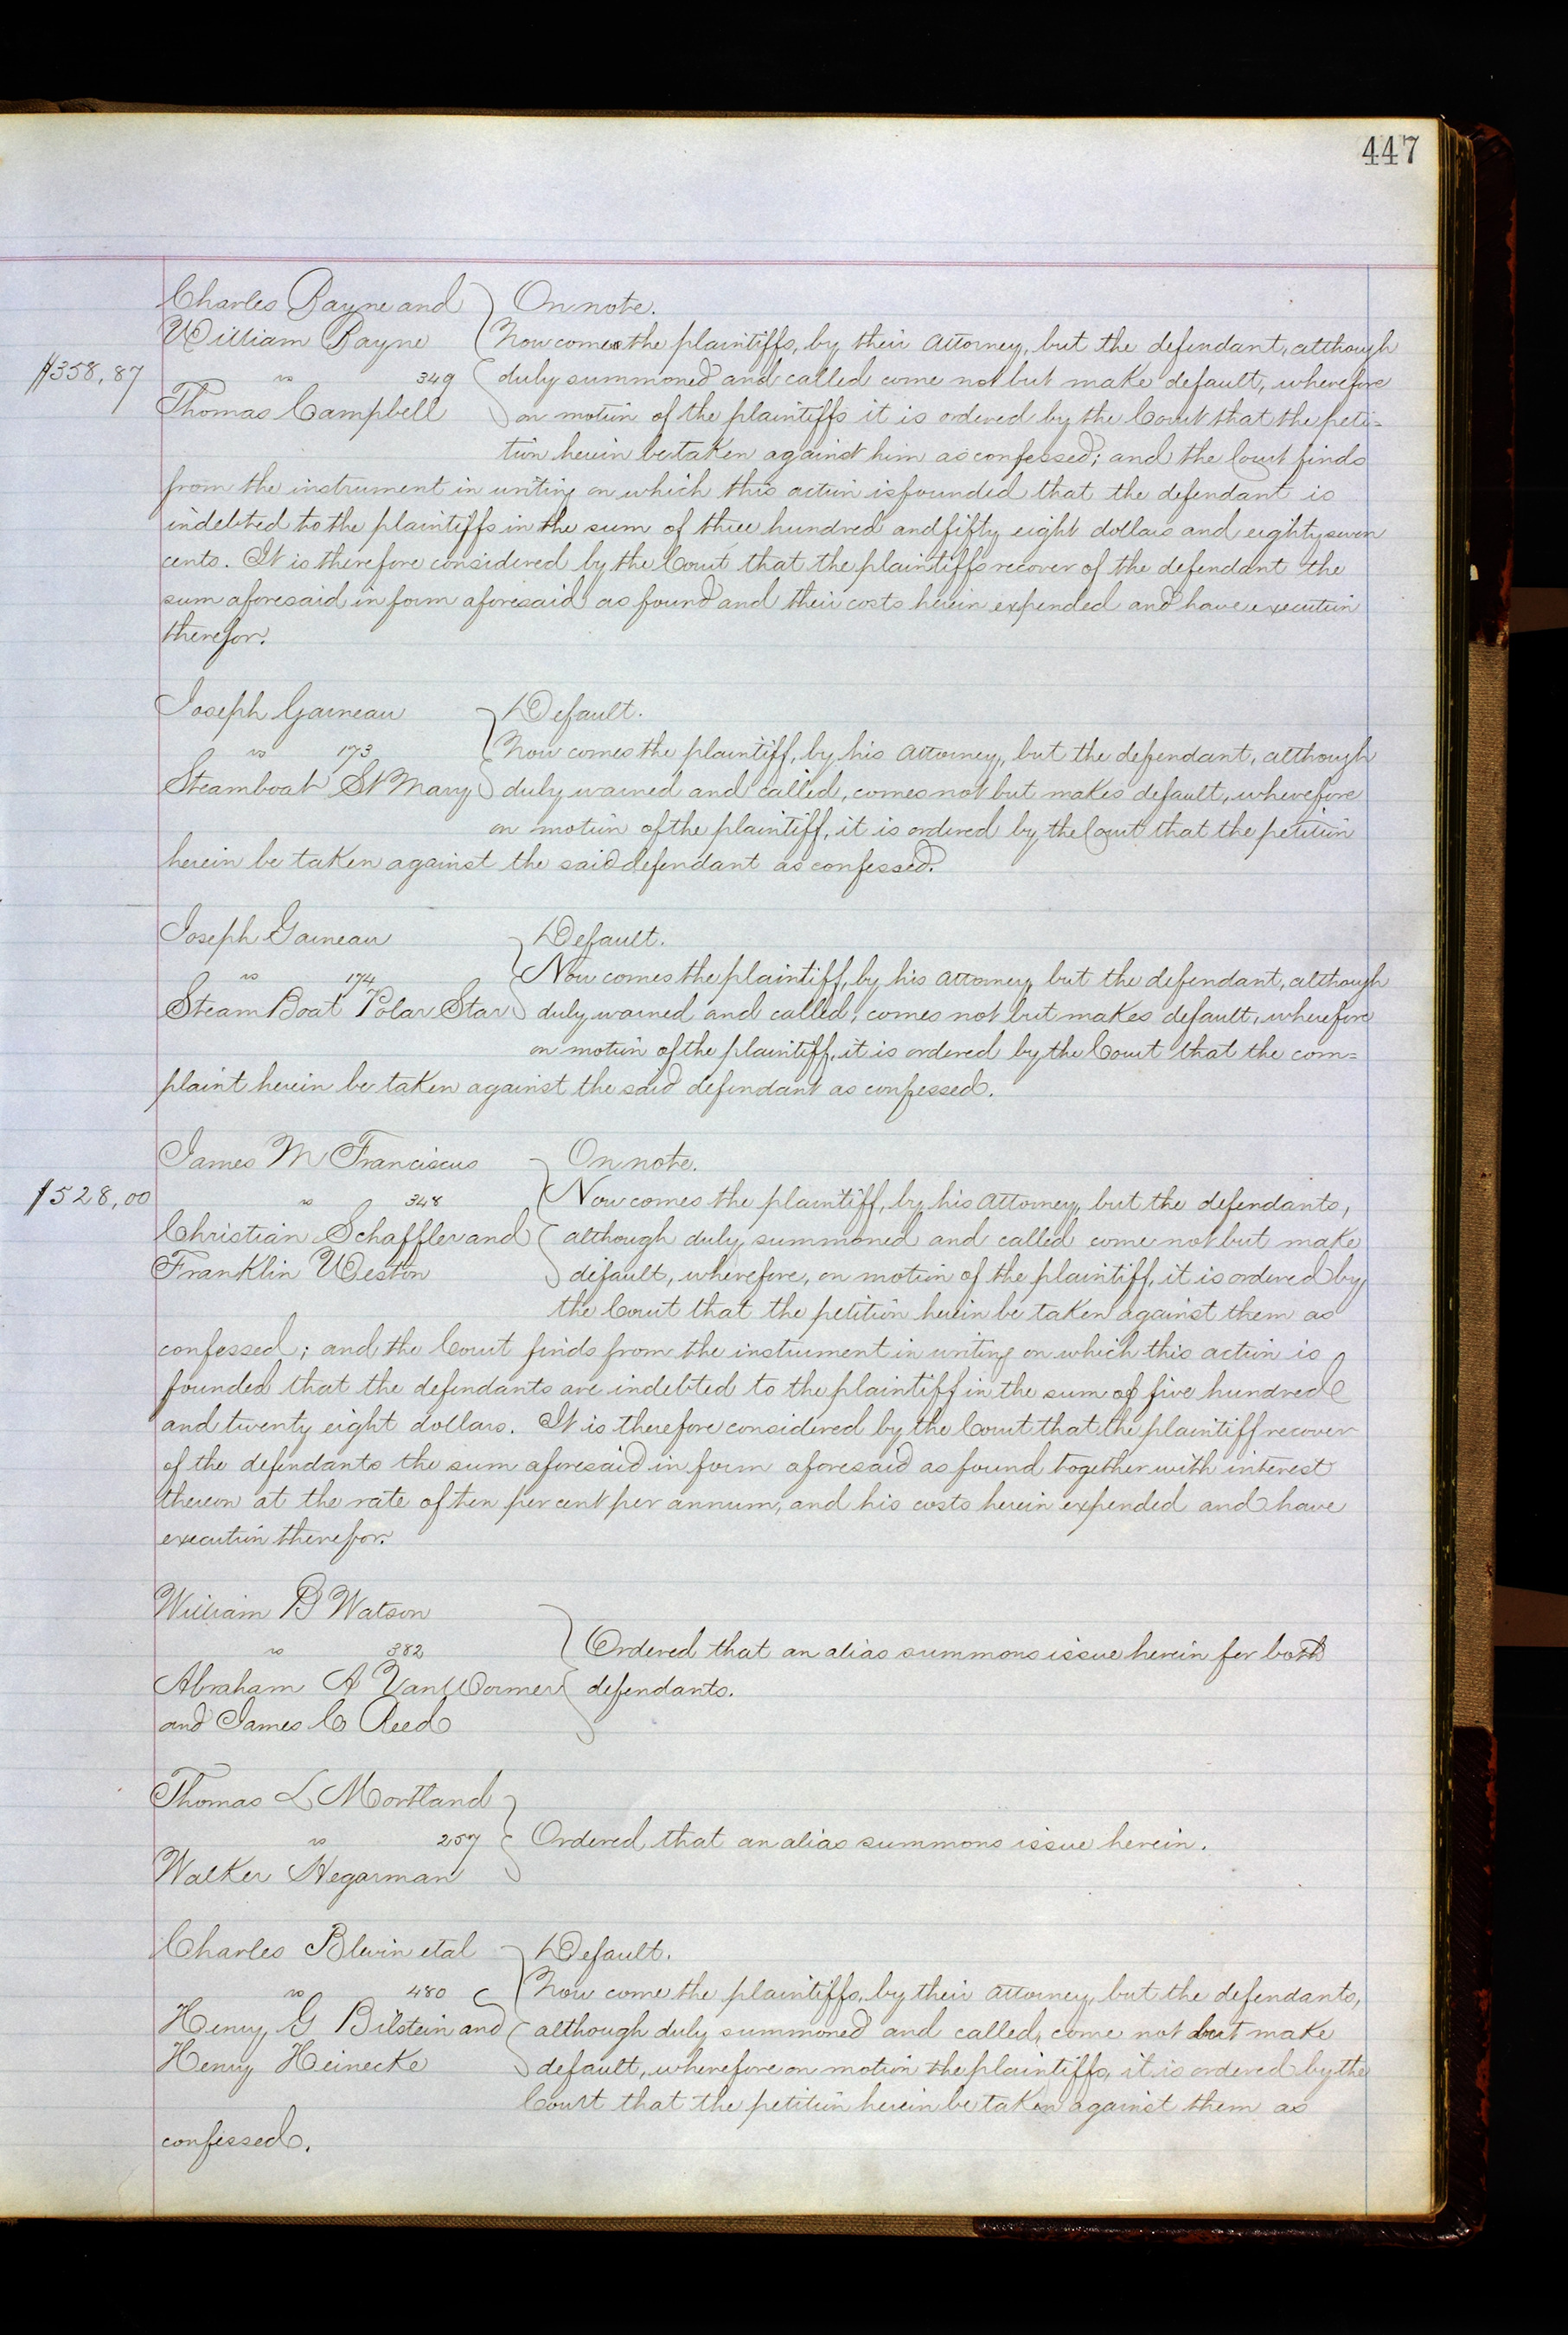 447
Charles Payne and On note.
William Payne Now comes the plaintiffs, by their attorney, but the defendant, although
$358,87 vs 349 duly summoned and called come not but make default, wherefore
Thomas Campbell on motion of the plaintiffs it is ordered by the Court that the peti=
tion herein be taken against him as confessed; and the Court finds
from the instrument in writing on which this action is founded that the defendant is
indebted to the plaintiffs in the sum of three hundred and fifty eight dollars and eighty seven
cents. It is therefore considered by the Court that the plaintiffs recover of the defendant the
sum aforesaid in form aforesaid as found and their costs herein expended and have execution
therefor.
Joseph Garneau Default.
vs 173 Now comes the plaintiff, by his attorney, but the defendant, although
Steamboat St Mary duly warned and called, comes not but makes default, wherefore
on motion of the plaintiff, it is ordered by the Court that the petition
herein be taken against the said defendant as confessed.
Joseph Garneau Default.
vs 174 Now comes the plaintiff, by his attorney, but the defendant, although
Steam Boat Polar Star duly warned and called, comes not but makes default, wherefore
on motion of the plaintiff, it is ordered by the Court that the com=
plaint herein be taken against the said defendant as confessed.
James M Franciscus On note.
$528,00 vs 348 Now comes the plaintiff, by his attorney, but the defendants,
Christian Schaffler and although duly summoned and called come not but make
Franklin Weston default, wherefore, on motion of the plaintiff, it is ordered by
the Court that the petition herein be taken against them as
confessed; and the Court finds from the instrument in writing on which this action is
founded that the defendants are indebted to the plaintiff in the sum of five hundred
and twenty eight dollars. It is therefore considered by the Court that the plaintiff recover
of the defendants the sum aforesaid in form aforesaid as found together with interest
thereon at the rate of ten per cent per annum, and his costs herein expended and have
execution therefor.
William B Watson
vs 382 Ordered that an alias summons issue herein for both
Abraham A VanWormer defendants.
and James C Reed
Thomas L Mortland
vs 257 Ordered that an alias summons issue herein.
Walker Hegarman
Charles Blevin et al Default.
vs 480 Now come the plaintiffs, by their attorney, but the defendants,
Henry G Bilstein and although duly summoned and called, come not but make
Henry Heinecke default, wherefore on motion the plaintiffs, it is ordered by the
Court that the petition herein be taken against them as
confessed.